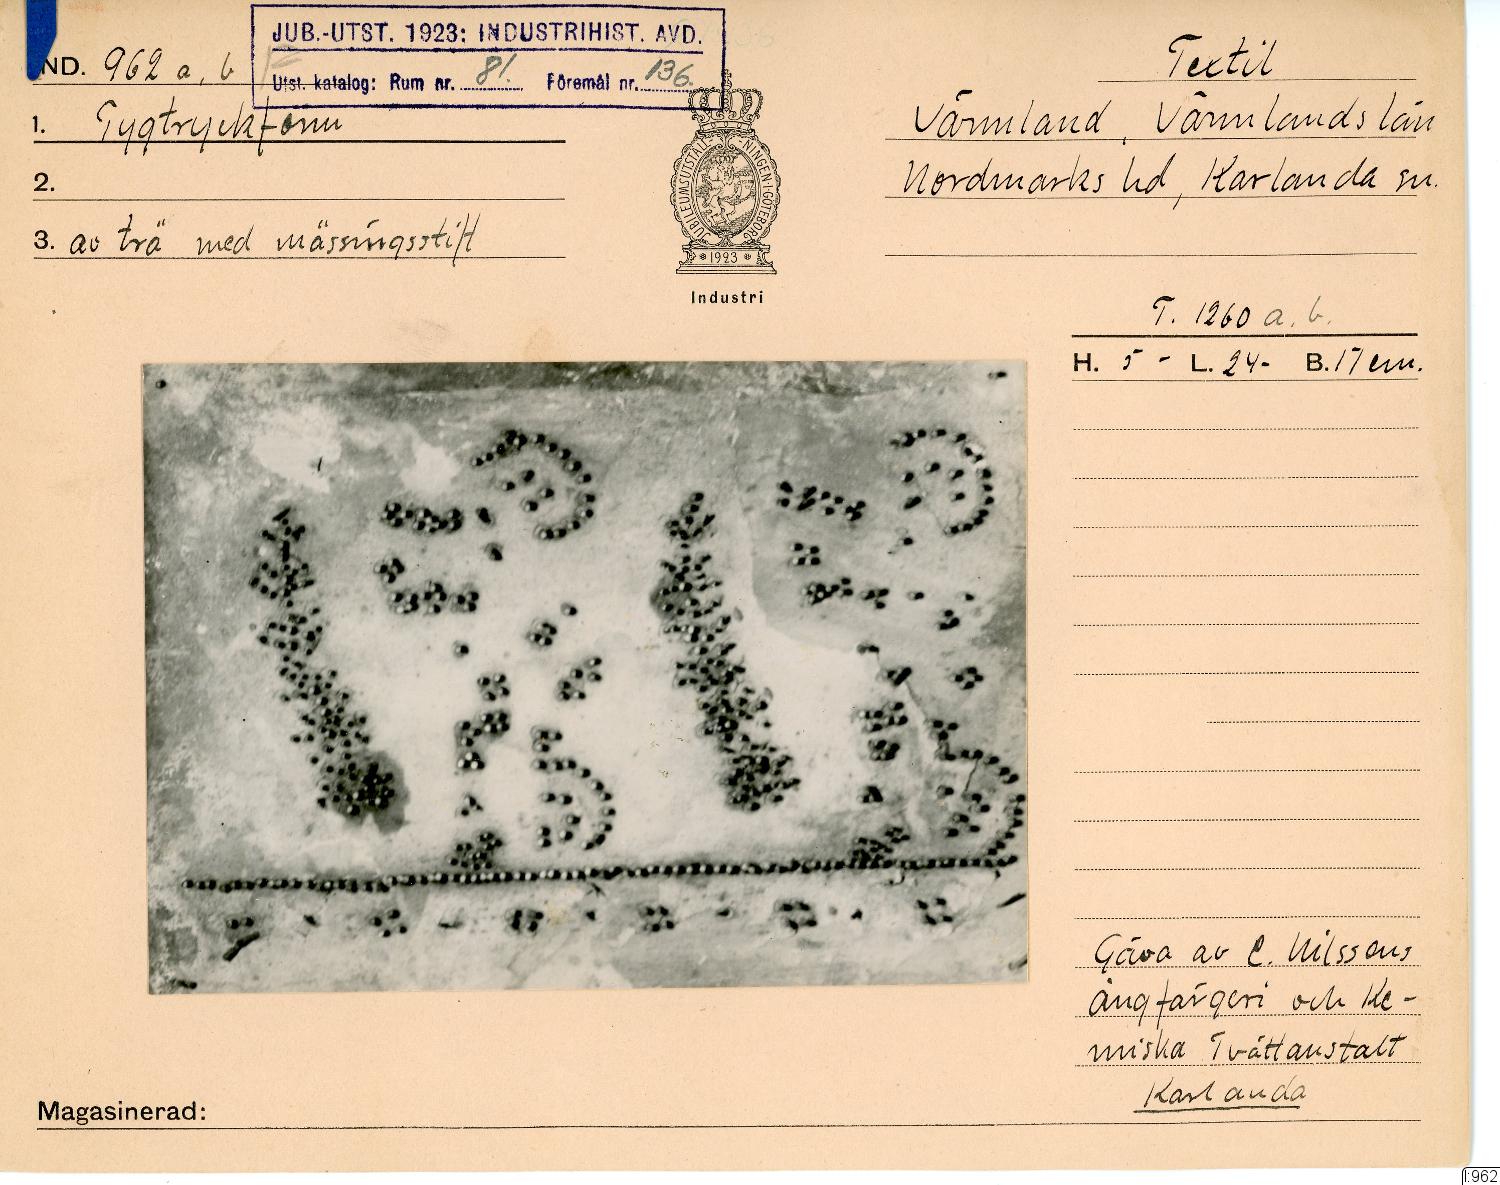 JUB.-UTST. 1923: INDUSTRIHIST. AVD.
Utst. katalog: Rum nr. 81. Föremål nr. 136.
IND. 962 a, b
1. Tygtryckform
2.
3. av trä med mässingsstift
JUBILEUMSUTSTÄLLNINGEN I GÖTEBORG
* 1923 *
Industri
Textil
Värmland, Värmlands län
Nordmarks hd, Karlanda sn.
T. 1260 a. b.
H. 5 - L. 24 - B. 17 cm.
Gåva av C. Nilssons
ångfärgeri och Ke-
miska Tvättanstalt
Karlanda
Magasinerad:
I:962